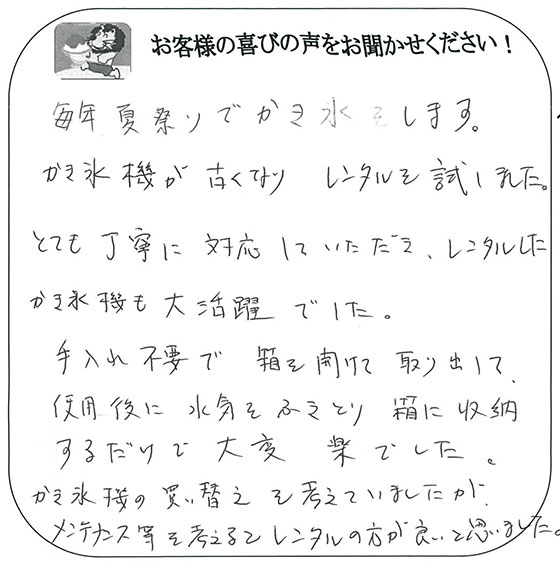 お客様の喜びの声をお聞かせください！
毎年夏祭りでかき氷をします。
かき氷機が古くなり レンタルを試しました。
とても丁寧に対応していただき、レンタルした
かき氷機も大活躍でした。
手入れ不要で 箱を開けて 取り出して、
使用後に 水気をふきとり 箱に収納
するだけで 大変 楽でした。
かき氷機の買い替えを考えていましたが、
メンテナンス等を考えるとレンタルの方が良いと思いました。